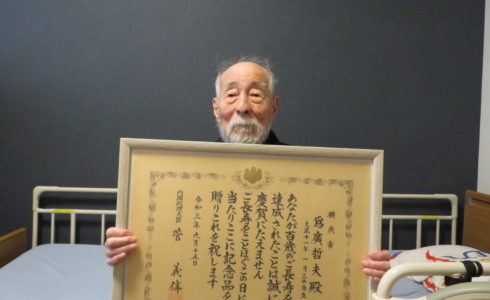 横浜市
爲廣哲夫殿
大正十一年一月三十日生
あなたが百歳のご長寿を
達成されたことは誠に
慶賀にたえません
ご長寿をことほぐこの日に
当たりここに記念品を
贈りこれを祝します
令和三年九月十五日
内閣総理大臣 菅 義偉